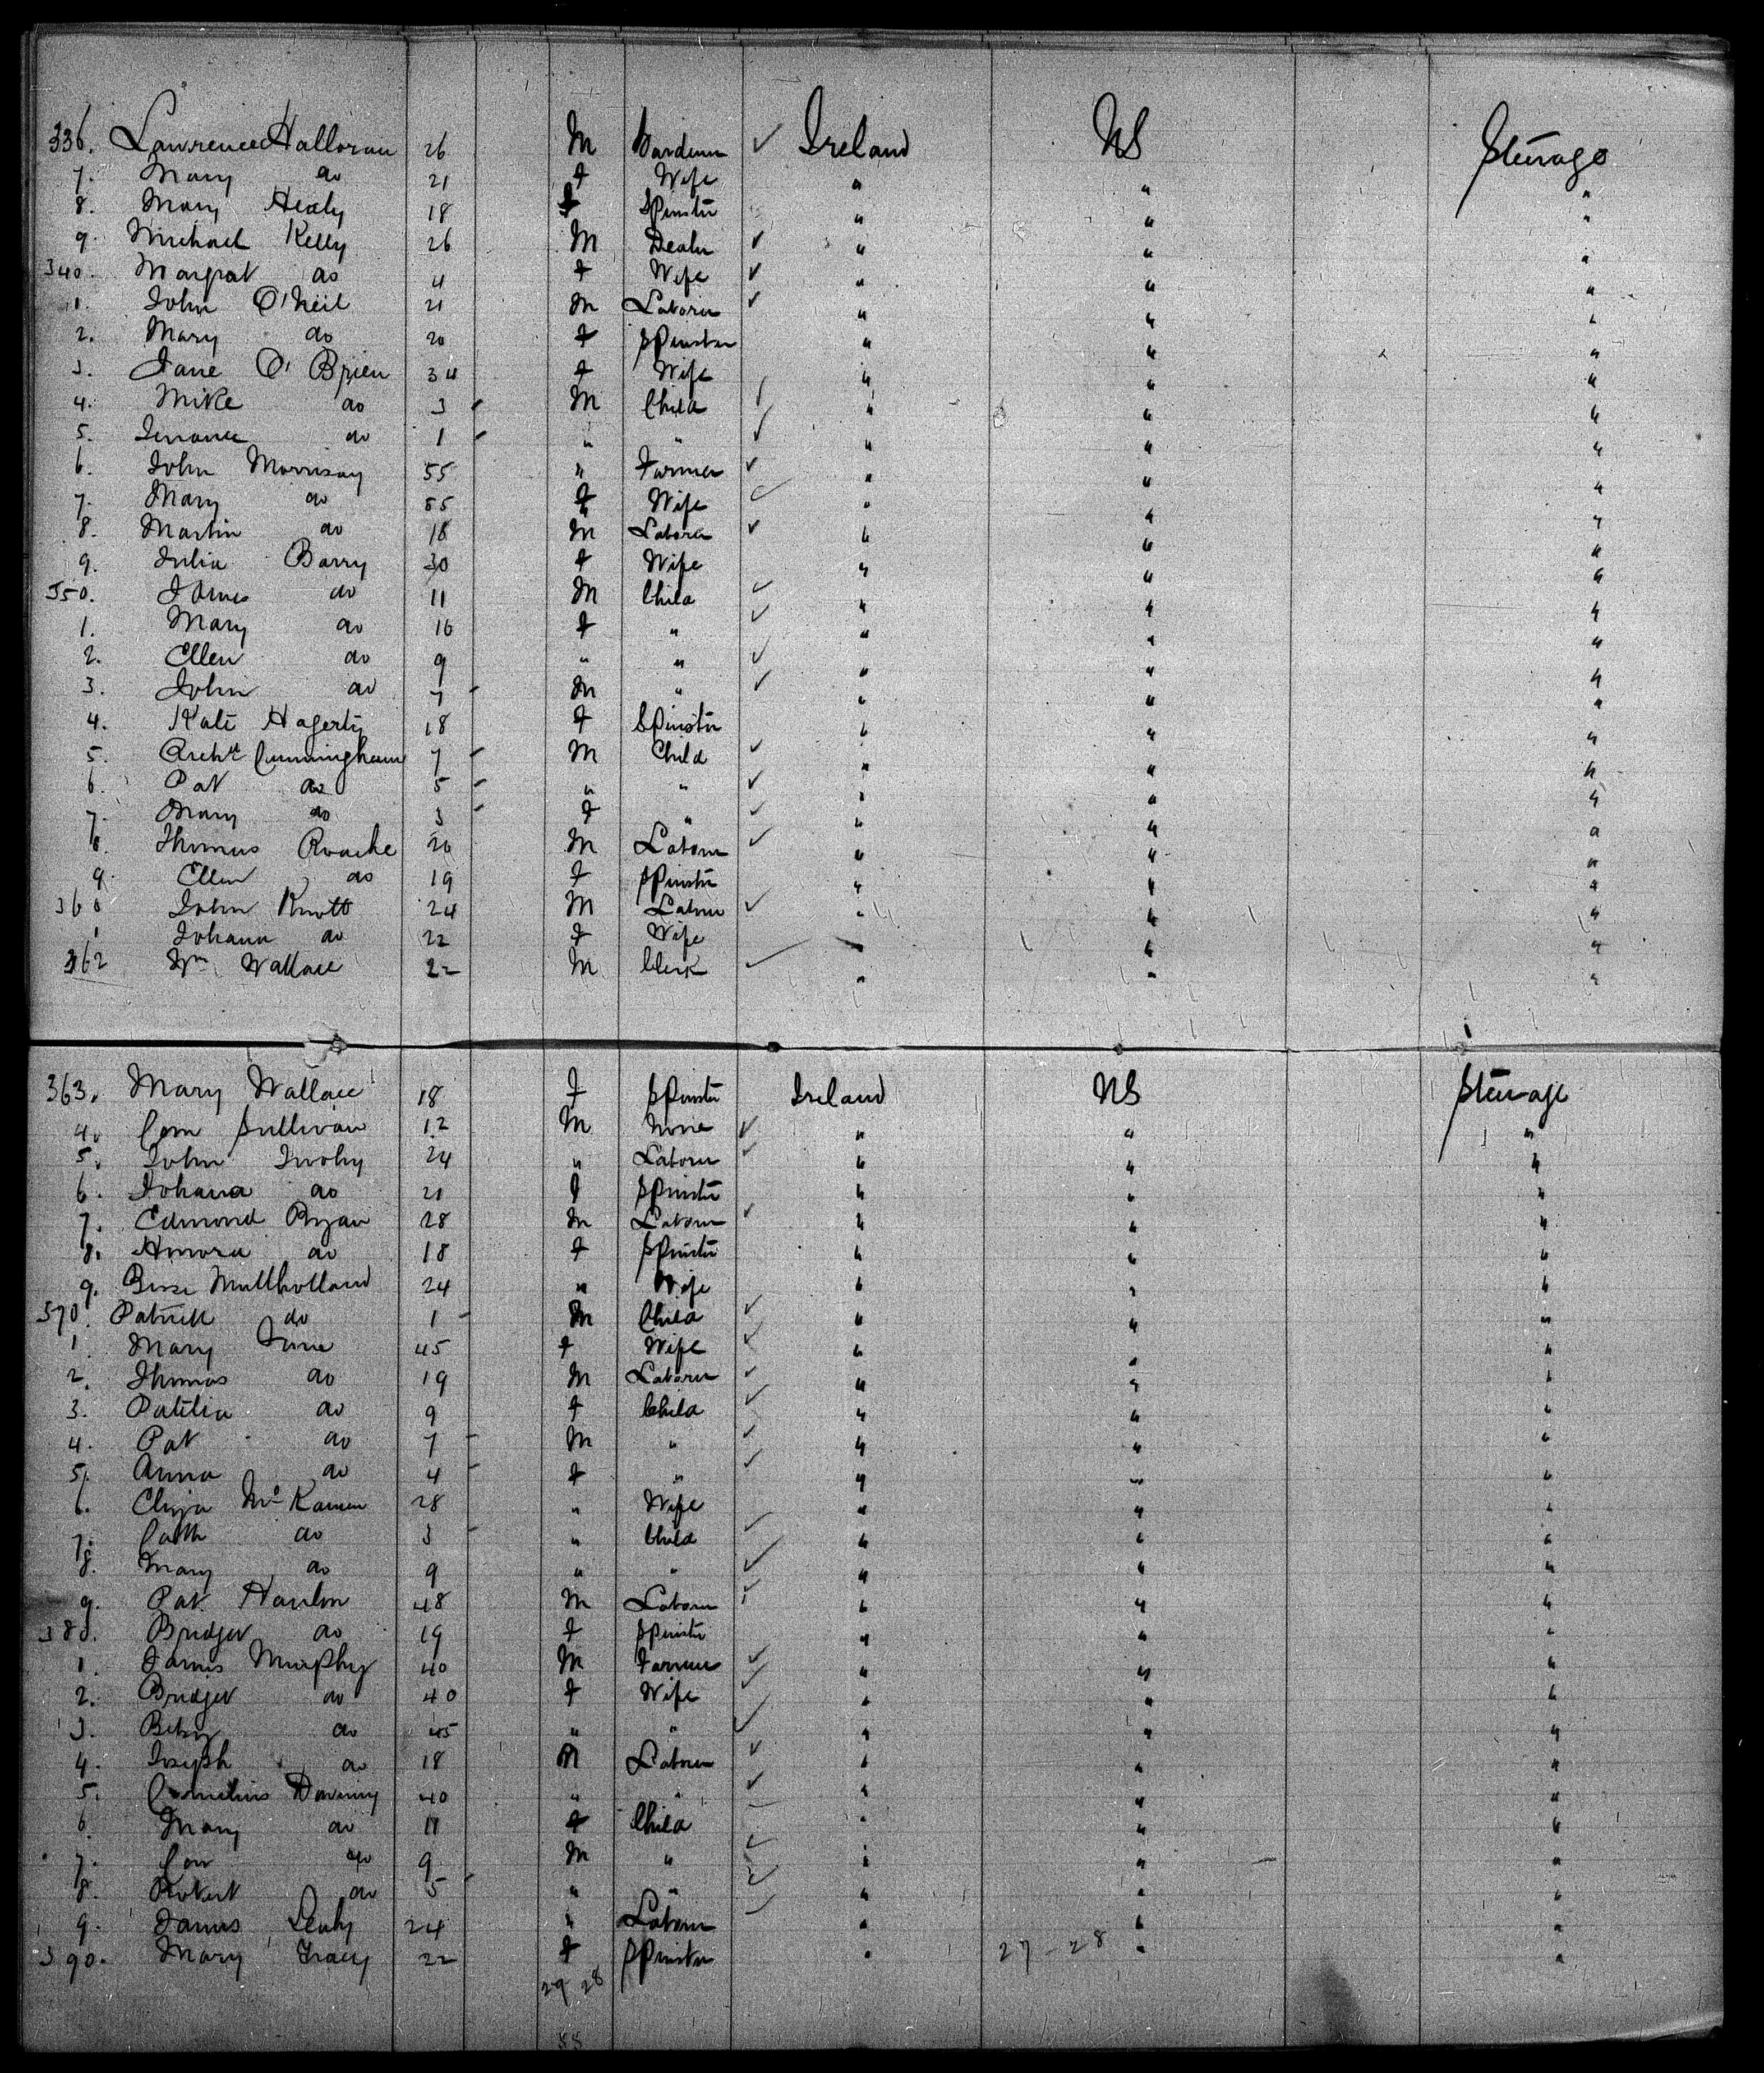 336. Lawrence Halloran 26 M Gardener ✓ Ireland US Steerage
7. Mary do 21 F Wife " " "
8. Mary Healy 18 F Spinster " " "
9. Michael Kelly 26 M Dealer ✓ " " "
340. Margrat do 4 F Wife ✓ " " "
1. John O'Neil 21 M Laborer ✓ " " "
2. Mary do 20 F Spinster " " "
3. Jane O'Brien 34 F Wife " " "
4. Mike do 3 M Child ✓ " " "
5. do 1 " " ✓ " " "
6. John Morrisay 55 " Farmer ✓ " " "
7. Mary do 55 F Wife ✓ " " "
8. Martin do 18 M Laborer ✓ " " "
9. Julia Barry 30 F Wife " " "
350. James do 11 M Child ✓ " " "
1. Mary do 10 F " ✓ " " "
2. Ellen do 9 " " ✓ " " "
3. John do 7 M " ✓ " " "
4. Kate Hagerty 18 F Spinster " " "
5. Cunningham 7 M Child ✓ " " "
6. Pat do 5 " " ✓ " " "
7. Mary do 3 F " ✓ " " "
8. Thomas Roache 20 M Laborer ✓ " " "
9. Ellen do 19 F Spinster " " "
360 John Knott 24 M Laborer ✓ " " "
1 Johana do 22 F Wife " " "
362 Wm Wallace 22 M Clerk ✓ " " "
363. Mary Wallace 18 F Spinster Ireland US Steerage
4. Corn Sullivan 12 M None ✓ " " "
5. John Twohy 24 " Laborer ✓ " " "
6. Johana do 21 F Spinster " " "
7. Edmond Ryan 28 M Laborer ✓ " " "
8. Honora do 18 F Spinster " " "
9. Mullholland 24 " Wife " " "
370. Patrick do 1 M Child ✓ " " "
1. Mary 45 F Wife ✓ " " "
2. Thomas do 19 M Laborer ✓ " " "
3. do 9 F Child ✓ " " "
4. Pat do 7 M " ✓ " " "
5. Anna do 4 F " ✓ " " "
6. Eliza 28 " Wife " " "
7. Cath do 3 " Child ✓ " " "
8. Mary do 9 " " ✓ " " "
9. Pat Hanlon 48 M Laborer ✓ " " "
380. Bridget do 19 F Spinster " " "
1. James Murphy 40 M Farmer ✓ " " "
2. Bridget do 40 F Wife ✓ " " "
3. Betsy do 45 " " ✓ " " "
4. Joseph do 18 M Laborer ✓ " " "
5. Cornelius Downing 40 " " ✓ " " "
6. Mary do 11 F Child ✓ " " "
7. Con do 9 M " ✓ " " "
8. Robert do 5 " " ✓ " " "
9. James Leahy 24 " Laborer ✓ " " "
390. Mary Tracy 22 F Spinster " 27-28 " "
29 28
55